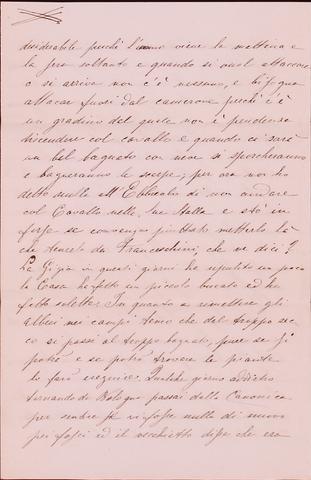 desiderabile perchè l'uomo viene la mattina e
la sera soltanto e quando si vuol attaccare
o si arriva non c'è nessuno, e bisogna
attacar fuori dal camerone perchè c'è
un gradino del quale non è prudenza
discendere col cavallo e quando ci sarà
un bel bagnato con neve si sporcheranno
e bagneranno le scarpe, per ora non ho
detto nulla all' di non andare
col Cavallo nella sua Stalla e sto in
forse se convenga piuttosto metterlo là
che tenerlo da Franceschini, che ne dici?
La Gigia in questi giorni ha ripulito un poco
la Casa ha fatto un piccolo bucato ed ha
fatto solette. In quanto a rimettere gli
alberi nei campi temo che dal troppo sec-
co si passi al troppo bagnato, pure se si
potrà e se potrò trovare le piante
lo farò eseguire. Qualche giorno addietro
tornando da Bologna passai dalla Canonica
per sentire se vi fosse nulla di nuovo
pei fossi ed il vecchietto disse che era